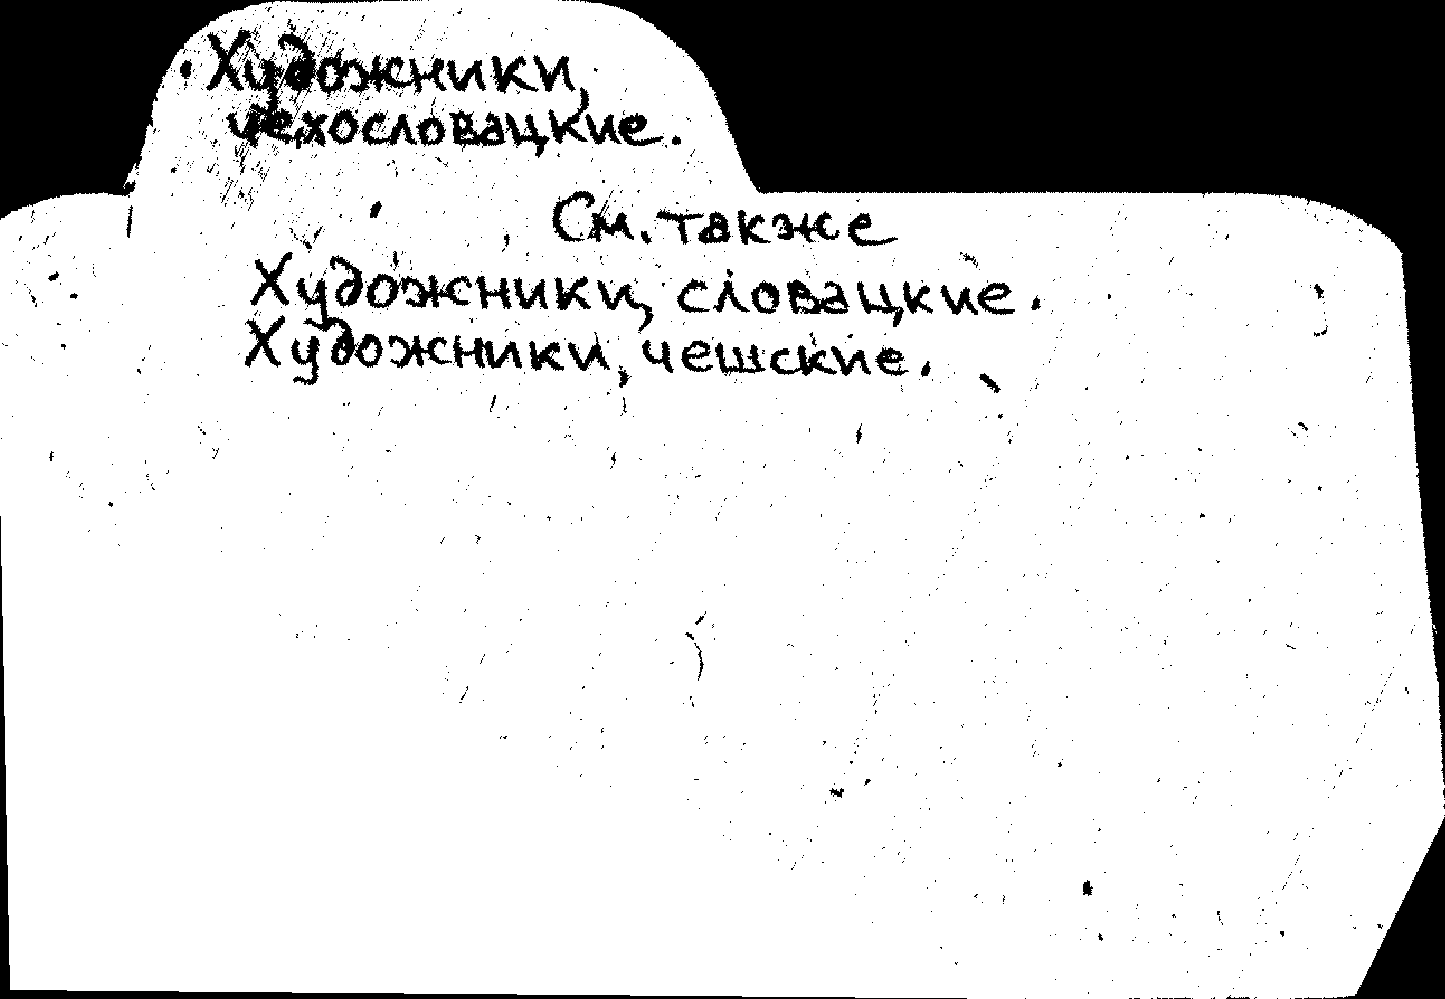 Художники,
чехословацкие.
См. также
Художники, словацкие.
Художники, чешские.